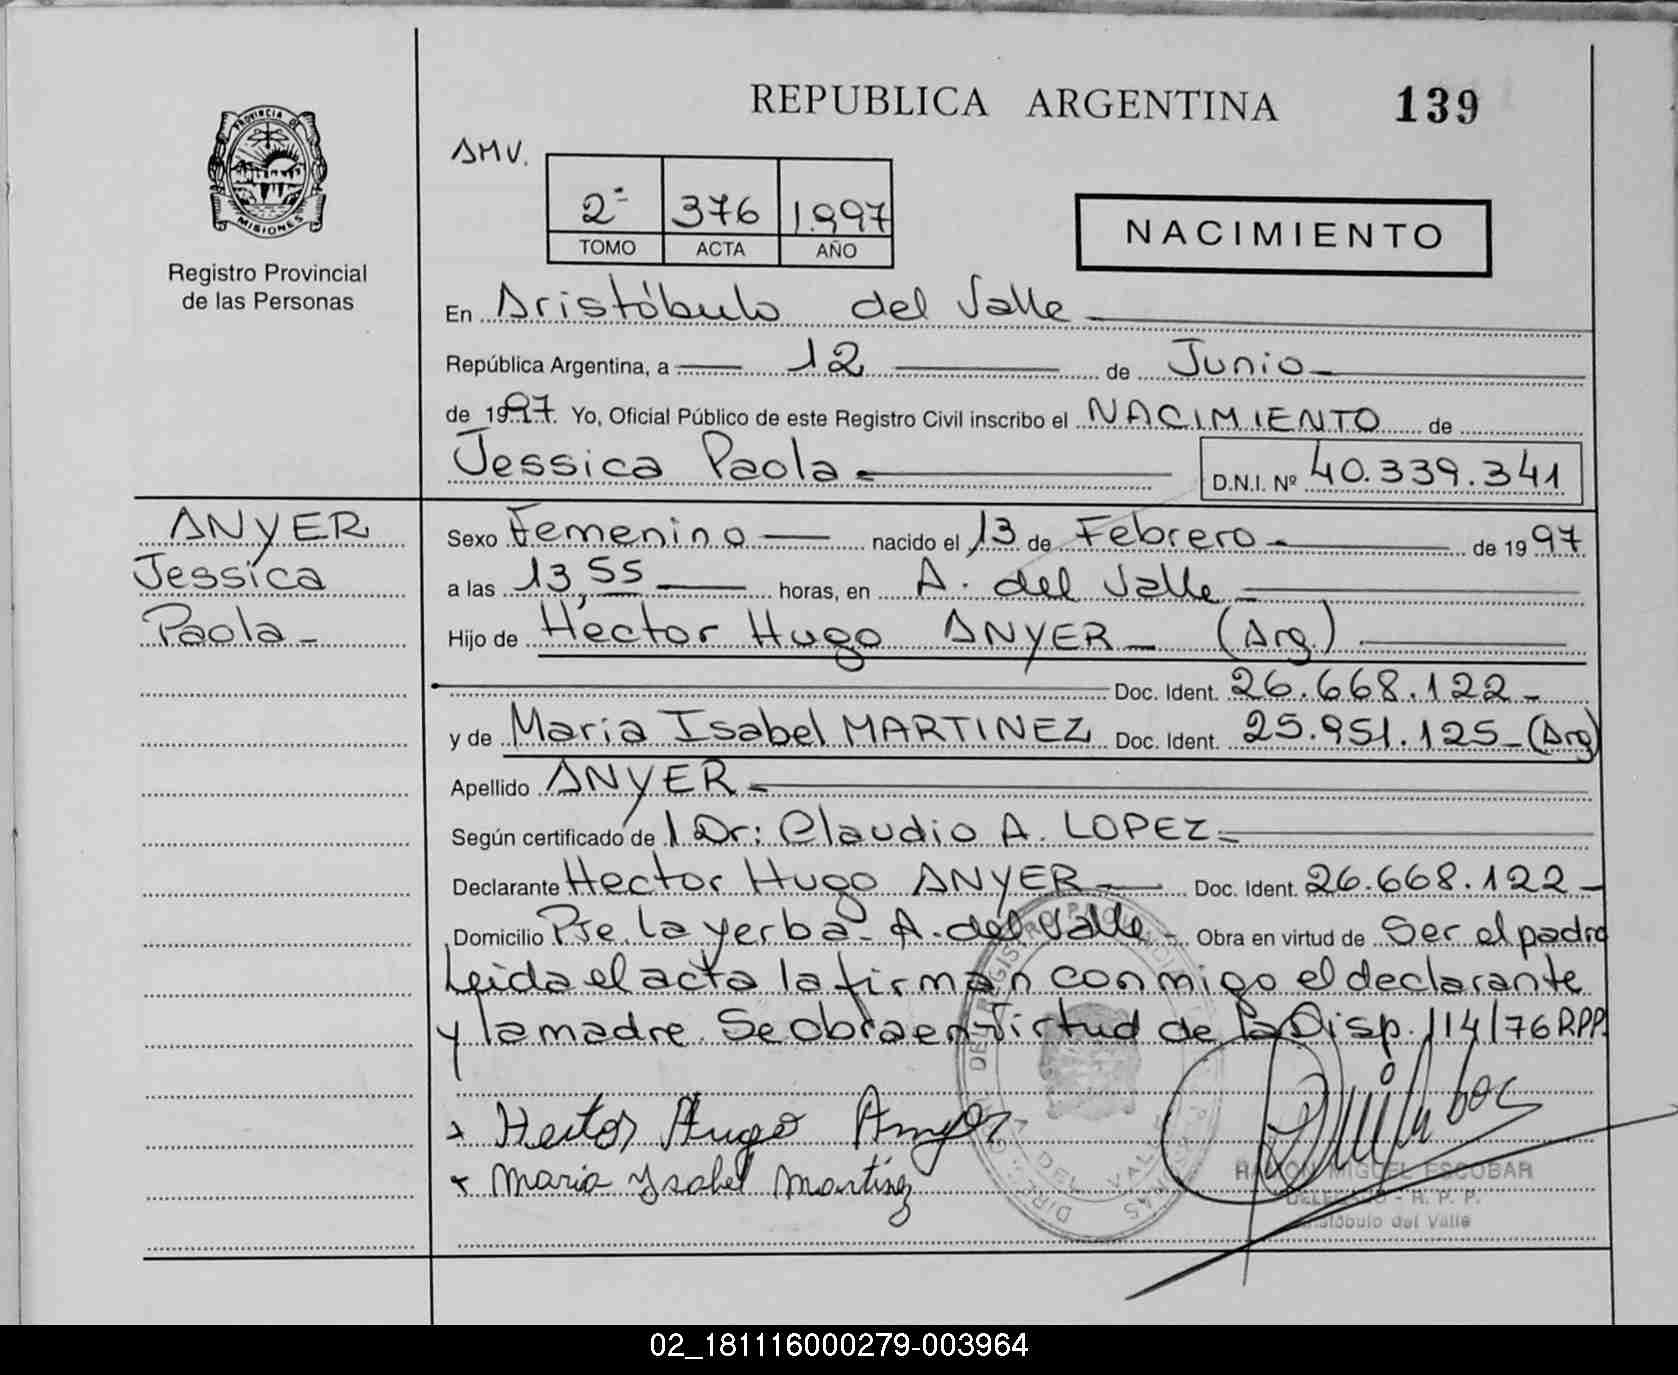 REPUBLICA ARGENTINA 139
PROVINCIA DE MISIONES
Registro Provincial
de las Personas
AMV.
2ª 376 1.997
TOMO ACTA AÑO
NACIMIENTO
En Aristóbulo del Valle
República Argentina, a 12 de Junio
de 1997. Yo, Oficial Público de este Registro Civil inscribo el NACIMIENTO de
Jessica Paola D.N.I. Nº 40.339.341
ANYER
Jessica
Paola
Sexo Femenino nacido el 13 de Febrero de 1997
a las 13,55 horas, en A. del Valle
Hijo de Hector Hugo ANYER (Arg.)
Doc. Ident. 26.668.122
y de Maria Isabel MARTINEZ Doc. Ident. 25.951.125 (Arg)
Apellido ANYER
Según certificado de l Dr: Claudio A. LOPEZ
Declarante Hector Hugo ANYER Doc. Ident. 26.668.122
Domicilio Pje. La yerba - A. del Valle Obra en virtud de Ser el padre
Leida el acta la firman conmigo el declarante
y la madre. Se obra en virtud de la Disp. 114/76 RPP.
Hector Hugo Anyer
Maria Ysabel Martinez
RAMON MIGUEL ESCOBAR
DELEGADO - R. P. P.
Aristóbulo del Valle
02_181116000279-003964